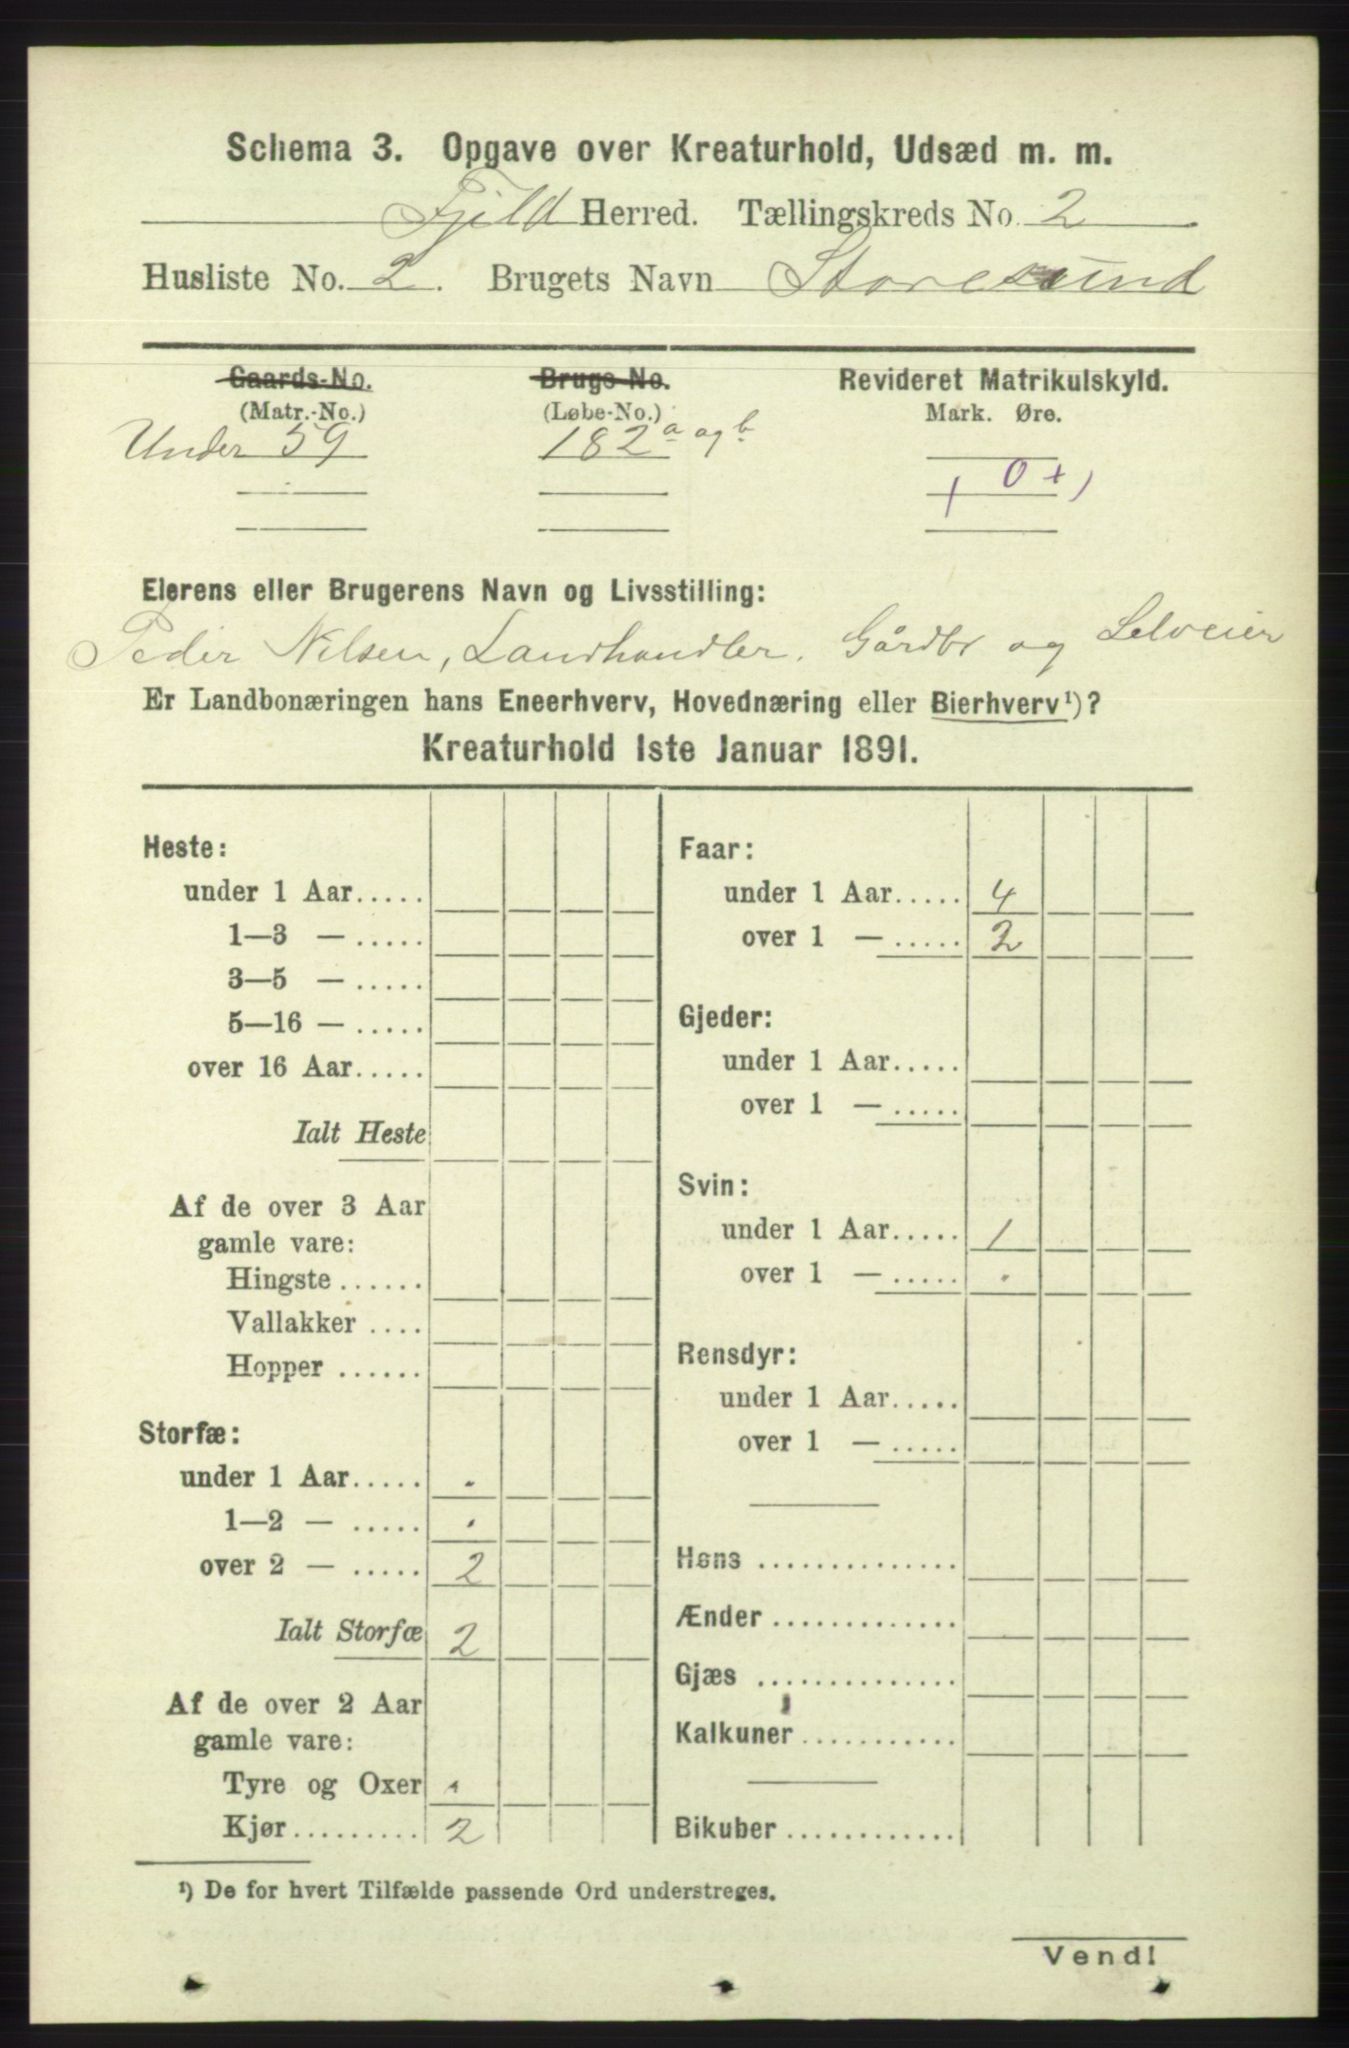 Schema 3. Opgave over Kreaturhold, Udsæd m. m.
Fjeld Herred. Tællingskreds No. 2
Husliste No. 2. Brugets Navn Storesund
Gaards-No. Brugs-No. Revideret Matrikulskyld.
(Matr.-No.) (Løbe-No.) Mark. Øre.
Under 59 182 a og b
( 0 + )
Eierens eller Brugerens Navn og Livsstilling:
Peder Nilsen, Landhandler. Gårdbr og Selveier
Er Landbonæringen hans Eneerhverv, Hovednæring eller Bierhverv¹)?
Kreaturhold 1ste Januar 1891.
Heste:
under 1 Aar.....
1—3 — .....
3—5 — .....
5—16 — .....
over 16 Aar.....
Ialt Heste
Af de over 3 Aar
gamle vare:
Hingste ......
Vallakker ....
Hopper ......
Storfæ:
under 1 Aar..... .
1—2 — ..... .
over 2 — ..... 2
Ialt Storfæ 2
Af de over 2 Aar
gamle vare:
Tyre og Oxer
Kjør......... 2
Faar:
under 1 Aar..... 4
over 1 — ..... 2
Gjeder:
under 1 Aar.....
over 1 — .....
Svin:
under 1 Aar..... 1
over 1 — ..... .
Rensdyr:
under 1 Aar.....
over 1 — .....
Høns ..............
Ænder .............
Gjæs ..............
Kalkuner ...........
Bikuber ............
¹) De for hvert Tilfælde passende Ord understreges.
Vend!